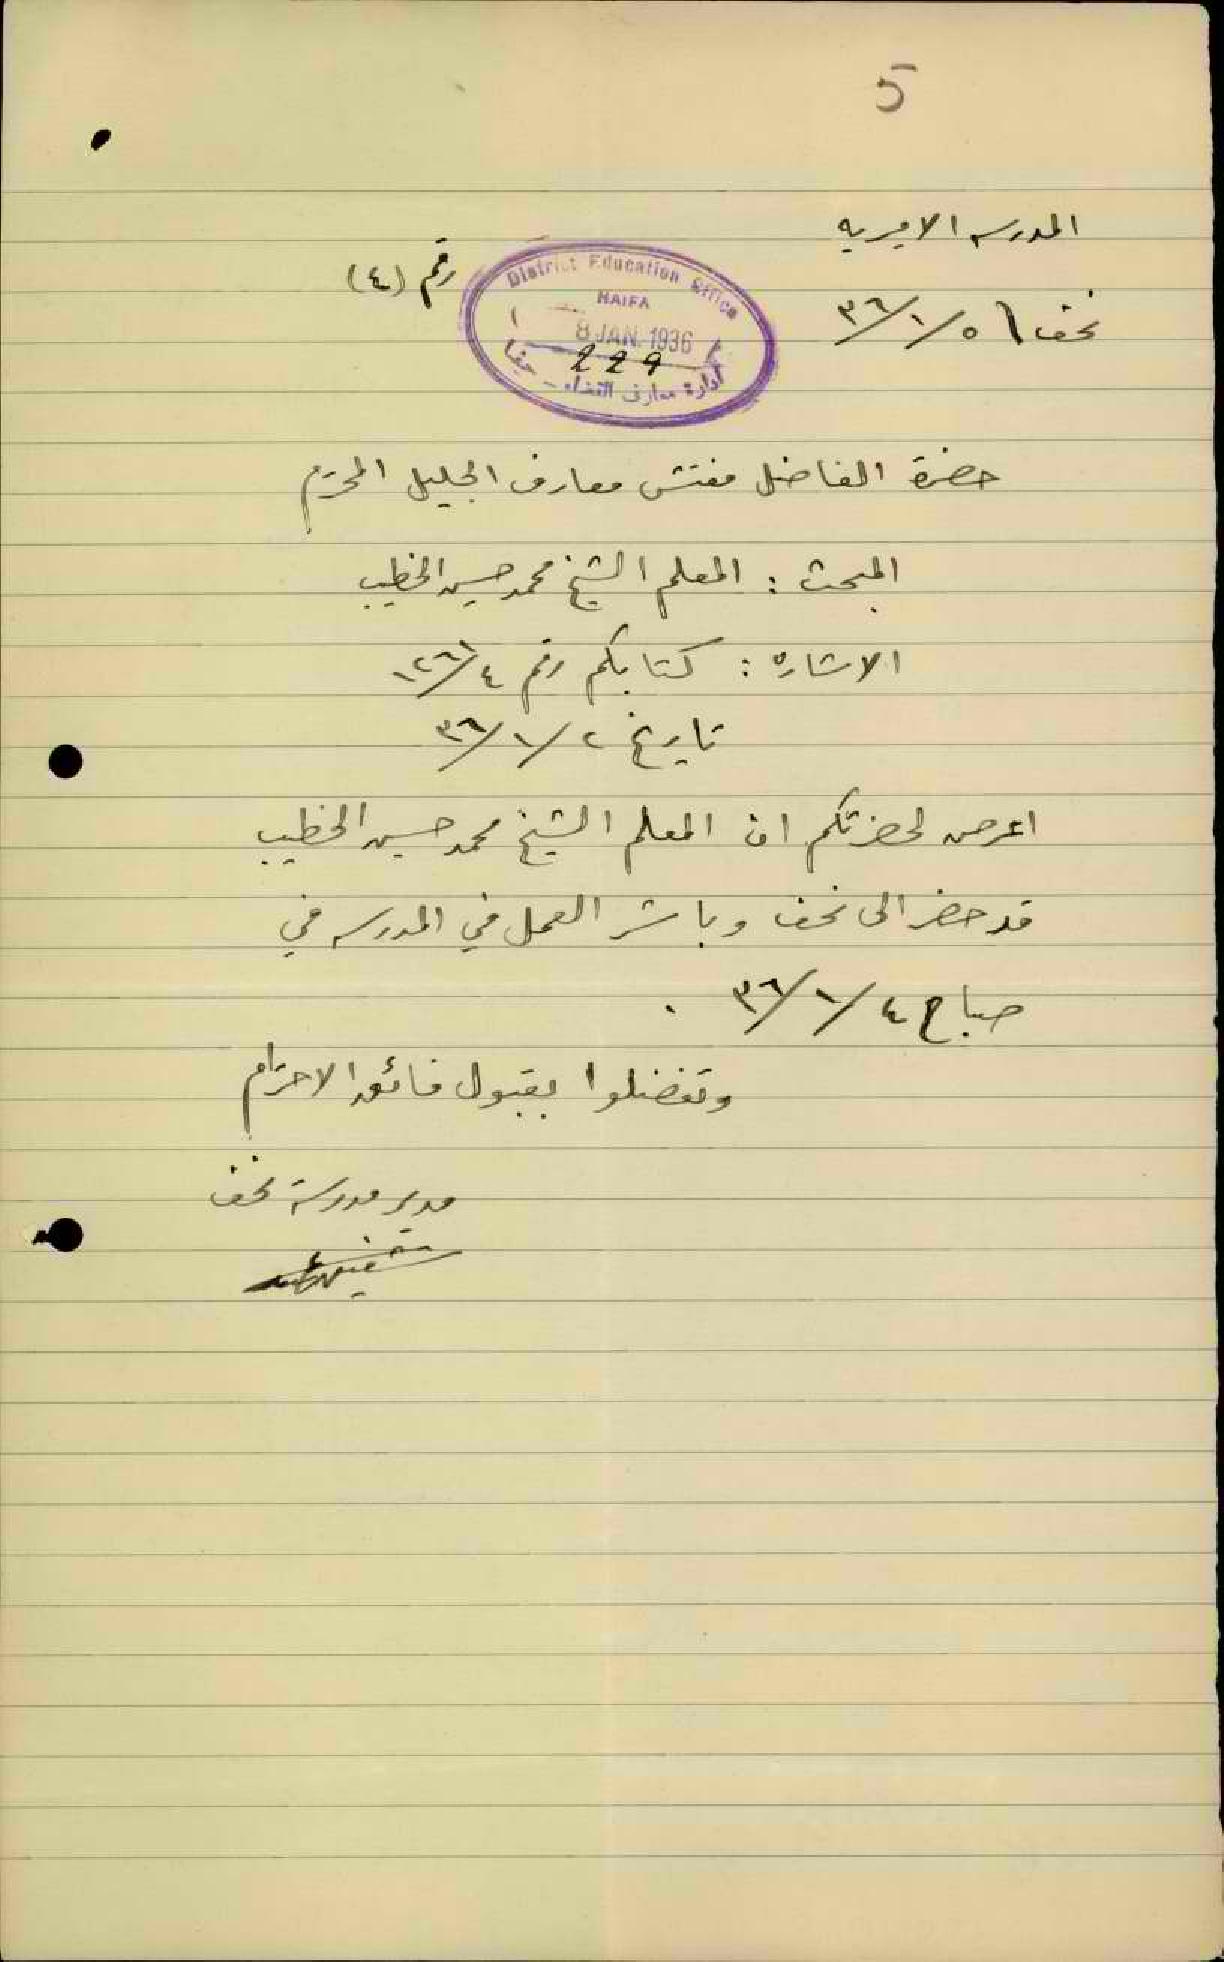 5
المدرسه الاميريه
رقم (٤)
نحف ٣٦/١/٥
District Education Office
HAIFA
8 JAN. 1936
229
ادارة معارف القضاء - حيفا
حضرة الفاضل مفتش معارف الجليل المحترم
المبحث : المعلم الشيخ محمد حسين الخطيب
الاشاره : كتابكم رقم ١٢٦/٤
تاريخ ٣٦/١/٢
اعرض لحضرتكم ان المعلم الشيخ محمد حسين الخطيب
قد حضر الى نحف وباشر العمل في المدرسه في
صباح ٣٦/١/٤ .
وتفضلوا بقبول فائق الاحترام
مدير مدرسة نحف